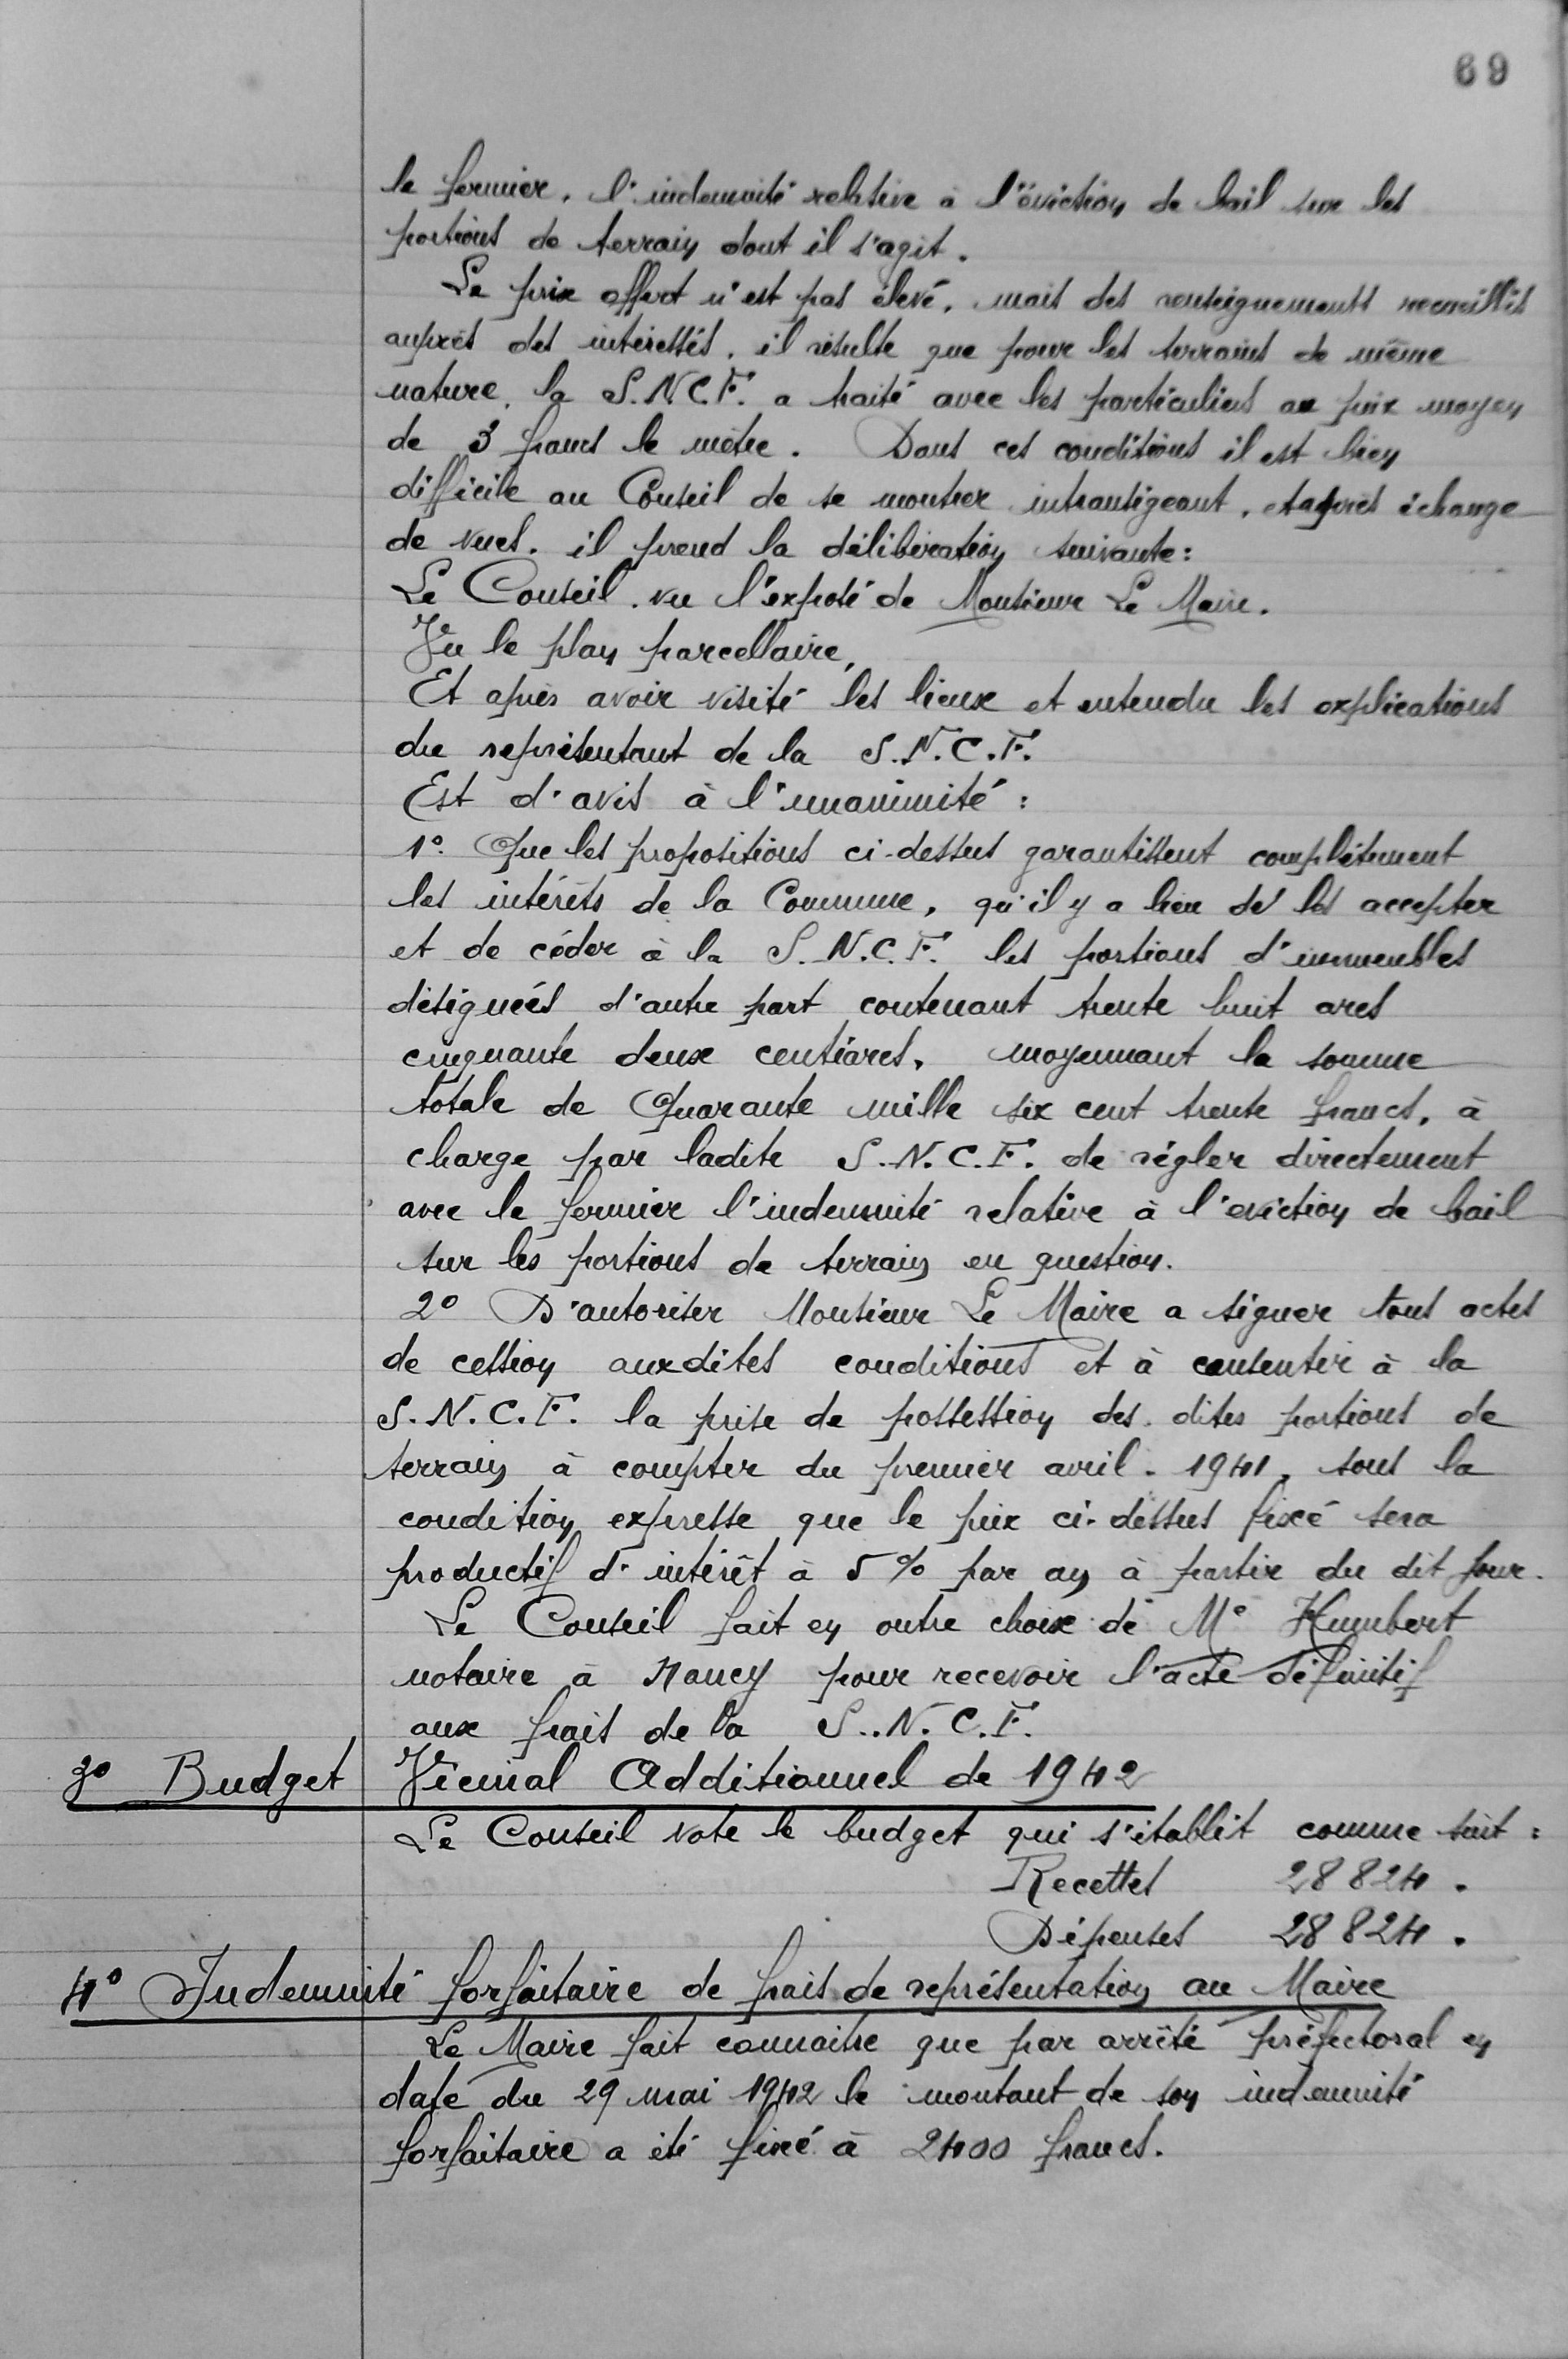 69
le fermier, l'indemnité relative à l'éviction de bail sur les
portions de terrain dont il s'agit.
Le prix offert n'est pas élevé, mais des renseignements recueillis
auprès des intéressés, il résulte que pour les terrains de même
nature, la S.N.C.F. a traité avec les particuliers au prix moyen
de 3 francs le mètre. Dans ces conditions il est bien
difficile au Conseil de se montrer intransigeant, et après échange
de vues, il prend la délibération suivante:
Le Conseil, vu l'exposé de Monsieur Le Maire.
Vu le plan parcellaire,
Et après avoir visité les lieux et entendu les explications
du représentant de la S.N.C.F.
Est d'avis à l'unanimité:
1º. Que les propositions ci-dessus garantissent complètement
les intérêts de la Commune, qu'il y a lieu de les accepter
et de céder à la S.N.C.F. les portions d'immeubles
désignées d'autre part contenant trente huit ares
cinquante deux centiares, moyennant la somme
totale de Quarante mille six cent trente francs, à
charge par ladite S.N.C.F. de régler directement
avec le fermier l'indemnité relative à l'eviction de bail
sur les portions de terrain en question.
2º D'autoriser Monsieur Le Maire a signer tous actes
de cession auxdites conditions et à consentir à la
S.N.C.F. la prise de possession des dites portions de
terrain à compter du premier avril. 1941, sous la
condition expresse que le prix ci-dessus fixé sera
productif d'intérêt à 5% par an à partir du dit jour.
Le Conseil fait en outre choix de Me Humbert
notaire à Nancy pour recevoir l'acte définitif
aux frais de la S.N.C.F.
3º Budget Vicinal Additionnel de 1942
Le Conseil vote le budget qui s'établit comme suit:
Recettes 28824.
Dépenses 28824.
4º Indemnité forfaitaire de frais de représentation au Maire
Le Maire fait connaitre que par arrêté préfectoral en
date du 29 mai 1942 le montant de son indemnité
forfaitaire a été fixé à 2400 francs.